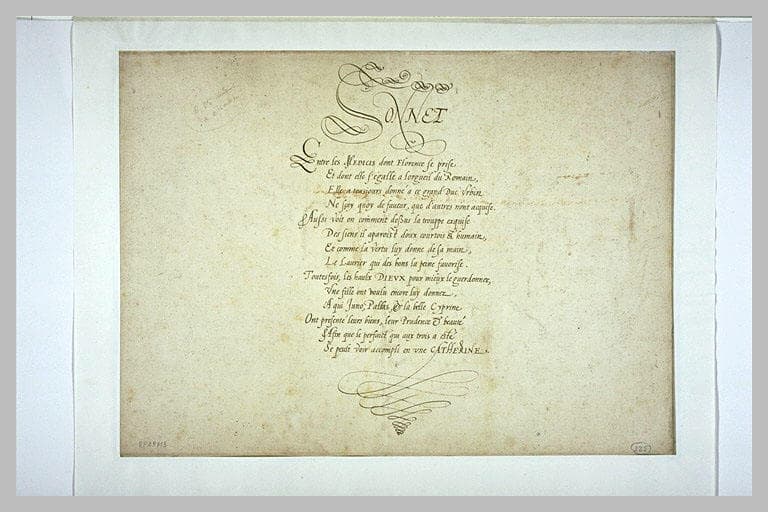 SONNET
Entre les MEDICIS dont Florence se prise
Et dont elle s'egalle a lorgueil du Romain,
Elle a tousjours donné a ce grand Duc Urbin
Ne sçay quoy de faueur, que d'autres n'ont acquise.
Aussi voit on comment dessus la trouppe exquise
Des siens il aparoist doux courtois & humain,
Et comme la vertu luy donne de sa main,
Le Laurier qui des bons la peine fauorise.
Toutesfois, les haulx DIEVX pour mieux le guerdonner,
Vne fille ont voulu encore luy donner,
A qui Juno, Pallas, & la belle Cyprine
Ont presenté leurs biens, leur Prudence & beauté
Afin que le parfaict qui aux trois a esté
Se peult voir accompli en vne CATHERINE.
225